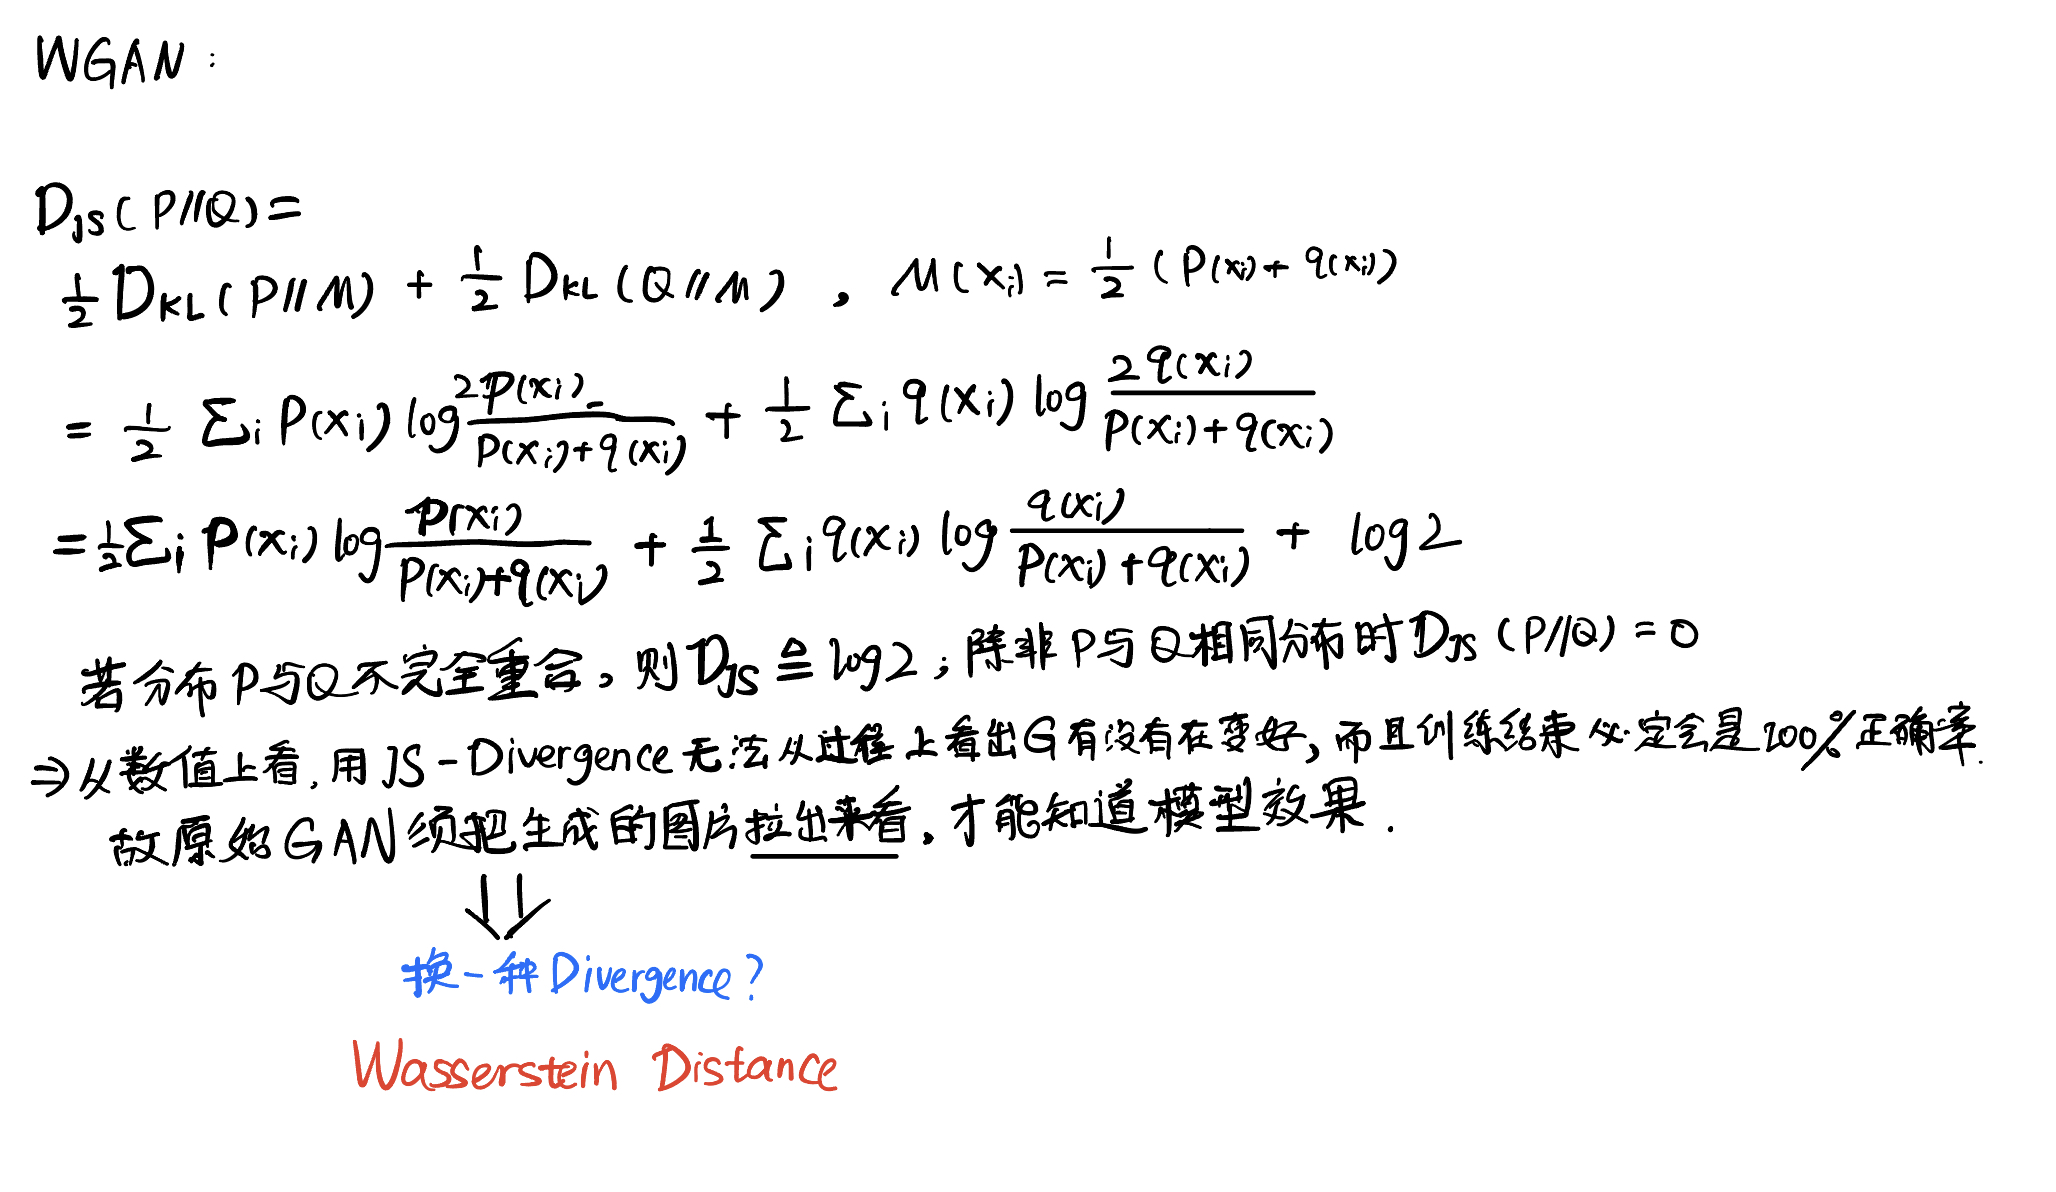 WGAN:
D_JS(P//Q)=
1/2 D_KL(P//M) + 1/2 D_KL(Q//M), M(xi) = 1/2 (P(xi)+q(xi))
= 1/2 Σi P(xi) log 2P(xi)/(P(xi)+q(xi)) + 1/2 Σi q(xi) log 2q(xi)/(P(xi)+q(xi))
= 1/2 Σi P(xi) log P(xi)/(P(xi)+q(xi)) + 1/2 Σi q(xi) log q(xi)/(P(xi)+q(xi)) + log2
若分布P与Q不完全重合,则D_JS ≙ log2;除非P与Q相同分布时D_JS(P//Q)=0
⇒从数值上看,用JS-Divergence无法从过程上看出G有没有在变好,而且训练结束必定会是100%正确率.
故原始GAN须把生成的图片拉出来看,才能知道模型效果.
⇓
换一种Divergence?
Wasserstein Distance